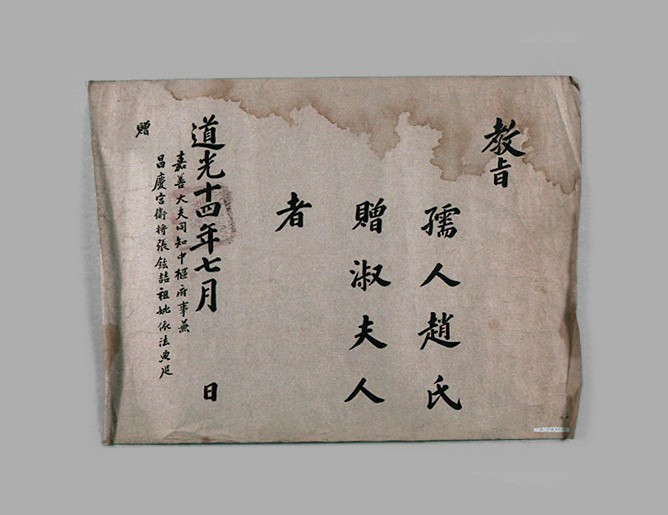 教旨
孺人趙氏
贈淑夫人
者
道光十四年七月 日
嘉善大夫同知中樞府事兼
昌慶宮衛將張鉉祖妣依法典追
贈